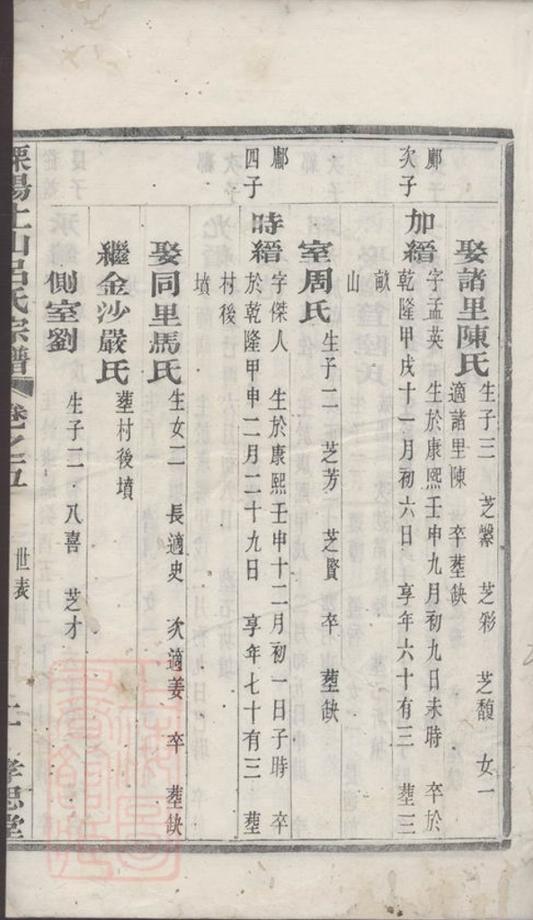 娶諸里陳氏 生子三 芝蘩 芝彩 芝馥 女一
適諸里陳 卒塟缺
鄺次子
加縉 字孟英 生於康熙壬申九月初九日未時 卒於
乾隆甲戌十一月初六日 享年六十有三 塟三
獻
山
室周氏 生子二 芝芳 芝賢 卒 塟缺
鄺四子
時縉 字傑人 生於康熙壬申十二月初一日子時 卒
於乾隆甲申二月二十九日 享年七十有三 塟
村後
墳
娶同里馬氏 生女二 長適史 次適姜 卒 塟缺
繼金沙嚴氏 塟村後墳
側室劉 生子二 八喜 芝才
溧陽上山呂氏宗譜 卷之五 世表 孝思堂